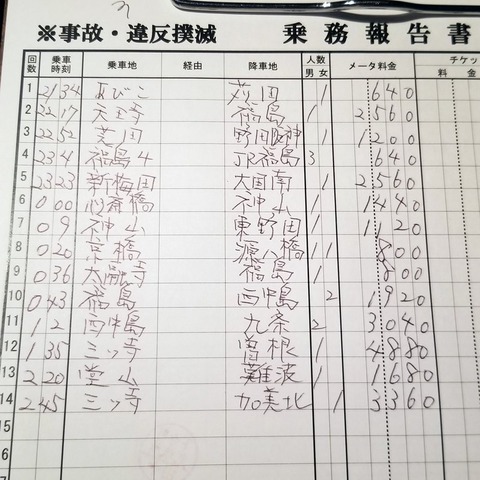 ※事故・違反撲滅 乗務報告書
回数 乗車時刻 乗車地 経由 降車地 人数 男 女 メータ料金 チケッ 料金
1 21 34 あびこ 苅田 1 640
2 22 17 天王寺 福島 1 2560
3 22 52 福島 野田阪神 1 1200
4 23 4 福島4 JR福島 3 640
5 23 23 新梅田 大国南 1 2560
6 0 00 心斎橋 神山 1 1440
7 0 9 神山 東野田 1 1120
8 0 20 京橋 源八橋 1 1 800
9 0 36 太融寺 福島 1 800
10 0 43 福島 西中島 2 1920
11 1 2 西中島 九条 2 3040
12 1 35 三ッ寺 曽根 1 4880
13 2 20 堂山 難波 1 1680
14 2 45 三ッ寺 加美北 1 3360
15
16
17